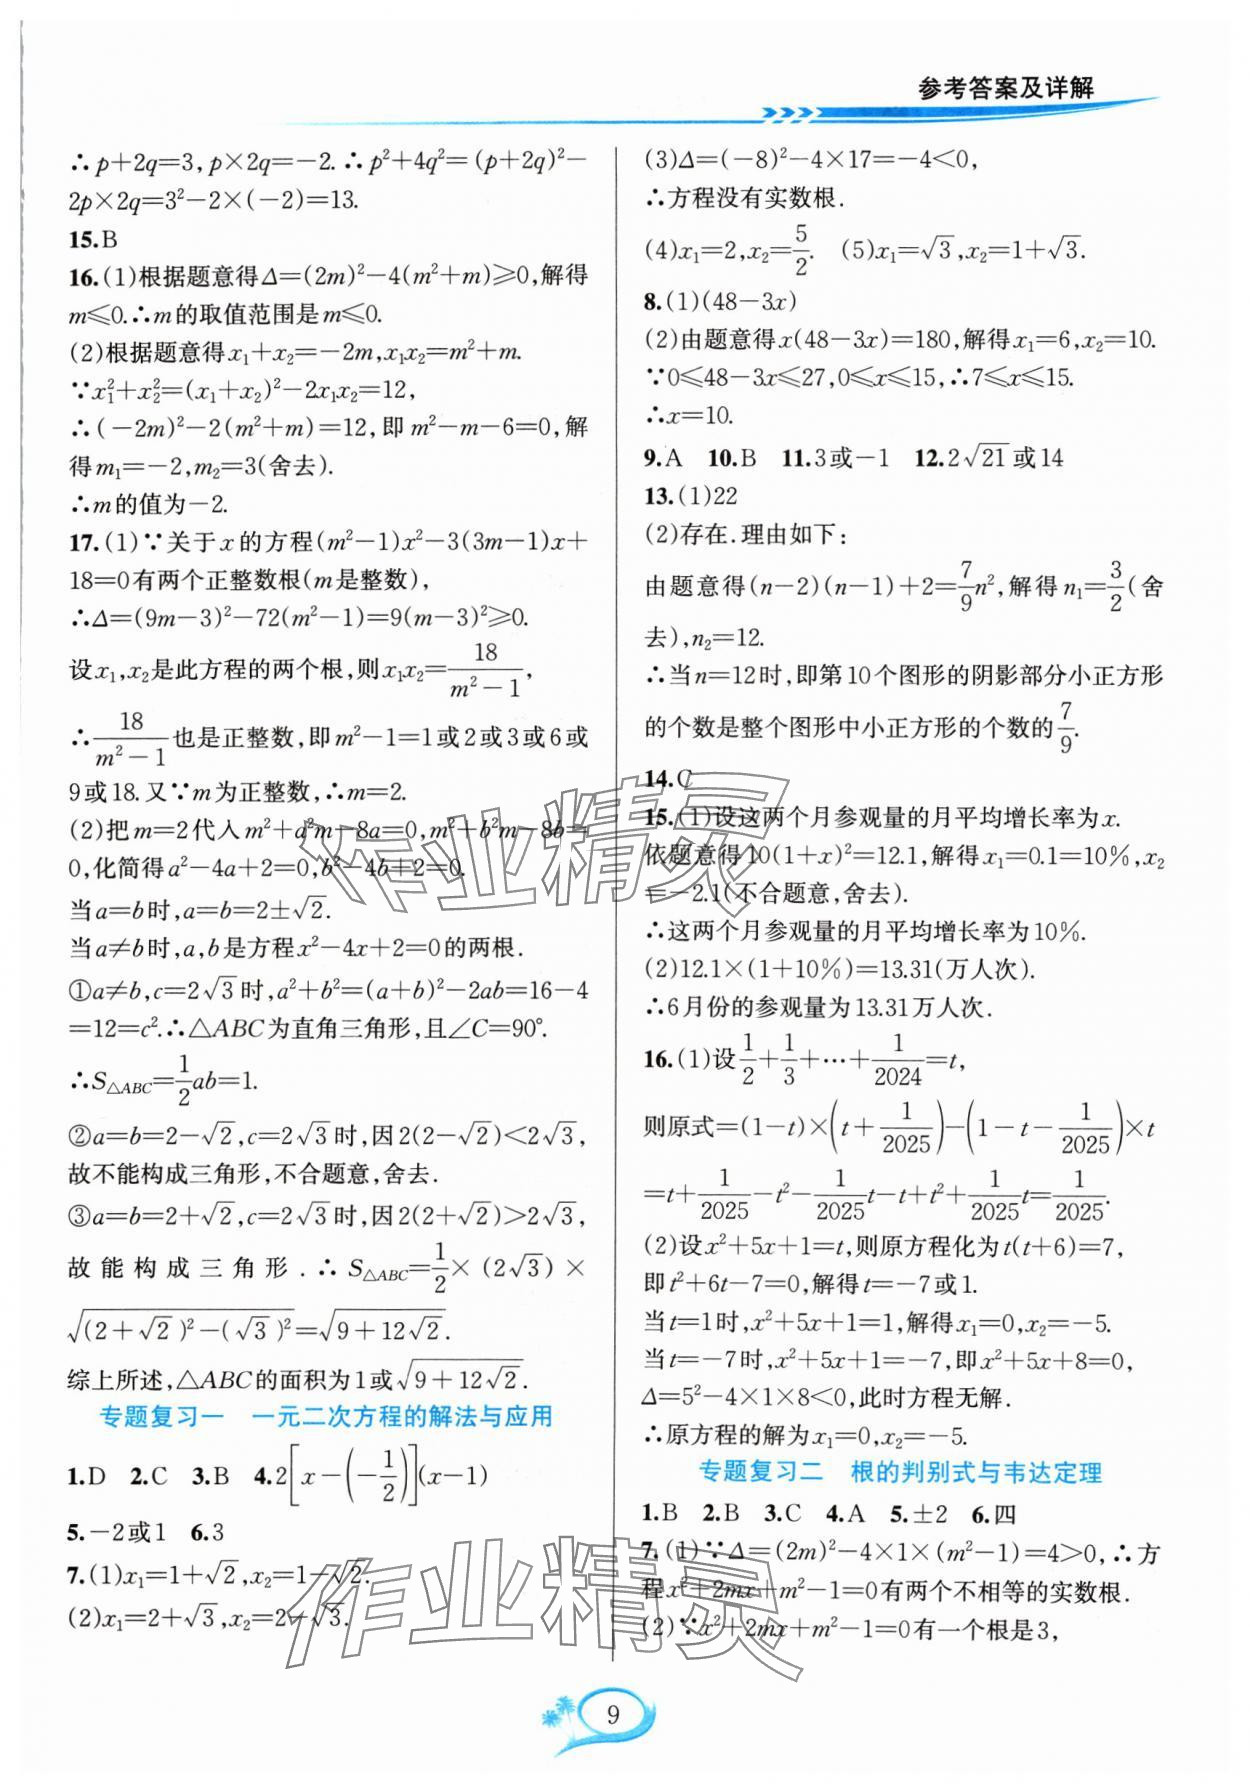 参考答案及详解
∴p+2q=3,p×2q=-2.∴p²+4q²=(p+2q)²-
2p×2q=3²-2×(-2)=13.
15.B
16.(1)根据题意得Δ=(2m)²-4(m²+m)≥0,解得
m≤0.∴m的取值范围是m≤0.
(2)根据题意得x₁+x₂=-2m,x₁x₂=m²+m.
∵x₁²+x₂²=(x₁+x₂)²-2x₁x₂=12,
∴(-2m)²-2(m²+m)=12,即m²-m-6=0,解
得m₁=-2,m₂=3(舍去).
∴m的值为-2.
17.(1)∵关于x的方程(m²-1)x²-3(3m-1)x+
18=0有两个正整数根(m是整数),
∴Δ=(9m-3)²-72(m²-1)=9(m-3)²≥0.
设x₁,x₂是此方程的两个根,则x₁x₂=18/(m²-1),
∴18/(m²-1)也是正整数,即m²-1=1或2或3或6或
9或18.又∵m为正整数,∴m=2.
(2)把m=2代入m²+a²m-8a=0,m²+b²m-8b=
0,化简得a²-4a+2=0,b²-4b+2=0.
当a=b时,a=b=2±√2.
当a≠b时,a,b是方程x²-4x+2=0的两根.
①a≠b,c=2√3时,a²+b²=(a+b)²-2ab=16-4
=12=c².∴△ABC为直角三角形,且∠C=90°.
∴S△ABC=1/2ab=1.
②a=b=2-√2,c=2√3时,因2(2-√2)<2√3,
故不能构成三角形,不合题意,舍去.
③a=b=2+√2,c=2√3时,因2(2+√2)>2√3,
故能构成三角形.∴S△ABC=1/2×(2√3)×
√((2+√2)²-(√3)²)=√(9+12√2).
综上所述,△ABC的面积为1或√(9+12√2).
专题复习一 一元二次方程的解法与应用
1.D 2.C 3.B 4.2[x-(-1/2)](x-1)
5.-2或1 6.3
7.(1)x₁=1+√2,x₂=1-√2.
(2)x₁=2+√3,x₂=2-√3.
(3)Δ=(-8)²-4×17=-4<0,
∴方程没有实数根.
(4)x₁=2,x₂=5/2. (5)x₁=√3,x₂=1+√3.
8.(1)(48-3x)
(2)由题意得x(48-3x)=180,解得x₁=6,x₂=10.
∵0≤48-3x≤27,0≤x≤15,∴7≤x≤15.
∴x=10.
9.A 10.B 11.3或-1 12.2√21或14
13.(1)22
(2)存在.理由如下:
由题意得(n-2)(n-1)+2=7/9n²,解得n₁=3/2(舍
去),n₂=12.
∴当n=12时,即第10个图形的阴影部分小正方形
的个数是整个图形中小正方形的个数的7/9.
14.C
15.(1)设这两个月参观量的月平均增长率为x.
依题意得10(1+x)²=12.1,解得x₁=0.1=10%,x₂
=-2.1(不合题意,舍去).
∴这两个月参观量的月平均增长率为10%.
(2)12.1×(1+10%)=13.31(万人次).
∴6月份的参观量为13.31万人次.
16.(1)设1/2+1/3+…+1/2024=t,
则原式=(1-t)×(t+1/2025)-(1-t-1/2025)×t
=t+1/2025-t²-1/2025t-t+t²+1/2025t=1/2025.
(2)设x²+5x+1=t,则原方程化为t(t+6)=7,
即t²+6t-7=0,解得t=-7或1.
当t=1时,x²+5x+1=1,解得x₁=0,x₂=-5.
当t=-7时,x²+5x+1=-7,即x²+5x+8=0,
Δ=5²-4×1×8<0,此时方程无解.
∴原方程的解为x₁=0,x₂=-5.
专题复习二 根的判别式与韦达定理
1.B 2.B 3.C 4.A 5.±2 6.四
7.(1)∵Δ=(2m)²-4×1×(m²-1)=4>0,∴方
程x²+2mx+m²-1=0有两个不相等的实数根.
(2)∵x²+2mx+m²-1=0有一个根是3,
作业精灵
作业精灵
9